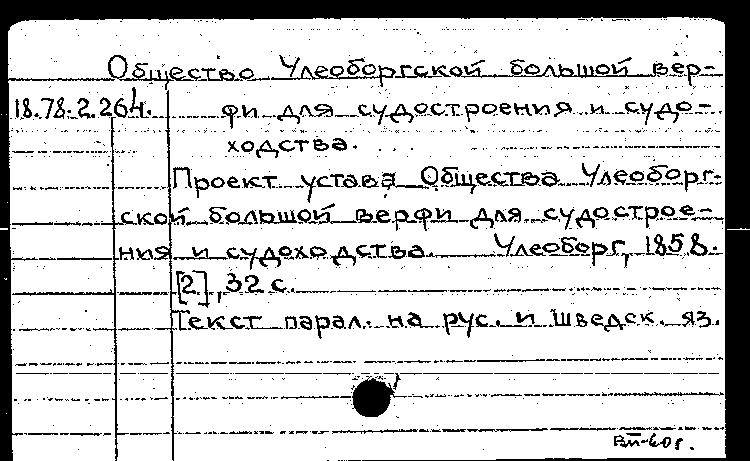 Общество Улеоборгской большой вер-
18.78.2.264. фи для судостроения и судо-
ходства.
Проект устава Общества Улеоборг-
ской большой верфи для судострое-
ния и судоходства. Улеоборг, 1858.
[2], 32 с.
Текст парал. на рус. и шведск. яз.